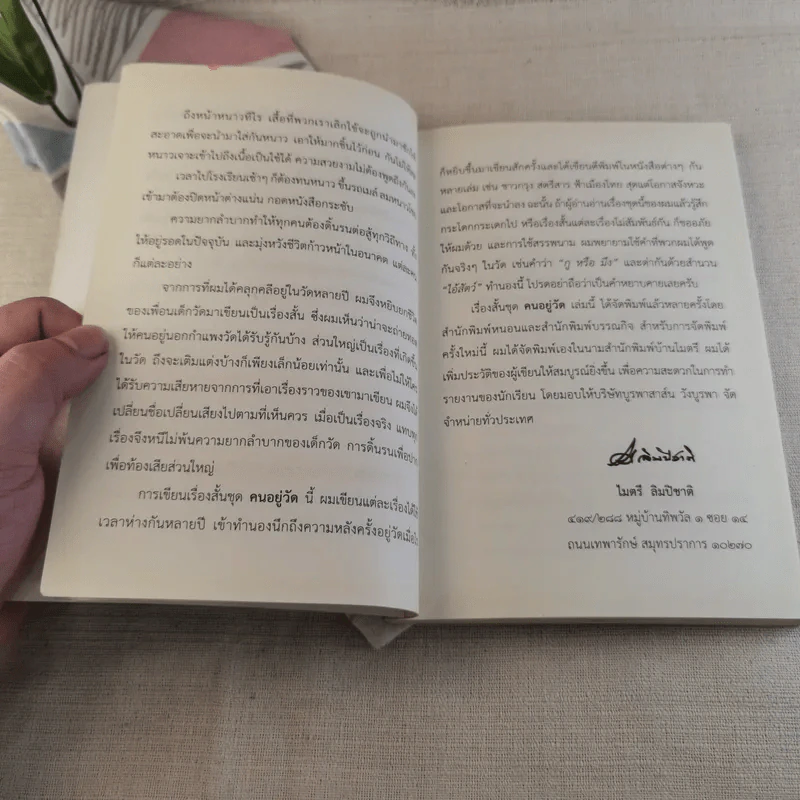 ถึงหน้าหนาวทีไร เสื้อที่พวกเราเลิกใช้จะถูกนำมาซัก
สะอาดเพื่อจะนำมาใส่กันหนาว เอาให้มากชิ้นไว้ก่อน กันไม่ให้
หนาวเจาะเข้าไปถึงเนื้อเป็นใช้ได้ ความสวยงามไม่ต้องพูดถึงกัน
เวลาไปโรงเรียนเช้าๆ ก็ต้องทนหนาว ขึ้นรถเมล์ ลมหนาว
เข้ามาต้องปิดหน้าต่างแน่น กอดหนังสือกระชับ
ความยากลำบากทำให้ทุกคนต้องดิ้นรนต่อสู้ทุกวิถีทาง
ให้อยู่รอดในปัจจุบัน และมุ่งหวังชีวิตก้าวหน้าในอนาคต แต่ละ
ก็แต่ละอย่าง
จากการที่ผมได้คลุกคลีอยู่ในวัดหลายปี ผมจึงหยิบยกชีวิต
ของเพื่อนเด็กวัดมาเขียนเป็นเรื่องสั้น ซึ่งผมเห็นว่าน่าจะถ่ายทอด
ให้คนอยู่นอกกำแพงวัดได้รับรู้กันบ้าง ส่วนใหญ่เป็นเรื่องที่เกิดขึ้น
ในวัด ถึงจะเติมแต่งบ้างก็เพียงเล็กน้อยเท่านั้น และเพื่อไม่ให้
ได้รับความเสียหายจากการที่เอาเรื่องราวของเขามาเขียน ผมจึง
เปลี่ยนชื่อเปลี่ยนเสียงไปตามที่เห็นควร เมื่อเป็นเรื่องจริง แทบทุก
เรื่องจึงหนีไม่พ้นความยากลำบากของเด็กวัด การดิ้นรนเพื่อ
เพื่อท้องเสียส่วนใหญ่
การเขียนเรื่องสั้นชุด คนอยู่วัด นี้ ผมเขียนแต่ละเรื่อง
เวลาห่างกันหลายปี เข้าทำนองนึกถึงความหลังครั้งอยู่วัดเมื่อ
ก็หยิบขึ้นมาเขียนสักครั้งและได้เขียนตีพิมพ์ในหนังสือต่างๆ กัน
หลายเล่ม เช่น ชาวกรุง สตรีสาร ฟ้าเมืองไทย สุดแต่โอกาสจังหวะ
และโอกาสที่จะนำลง ฉะนั้น ถ้าผู้อ่านอ่านเรื่องชุดนี้ของผมแล้วรู้สึก
กระโดกกระเดกไป หรือเรื่องสั้นแต่ละเรื่องไม่สัมพันธ์กัน ก็ขออภัย
ให้ผมด้วย และการใช้สรรพนาม ผมพยายามใช้คำที่พวกผมได้พูด
กันจริงๆ ในวัด เช่นคำว่า "กู หรือ มึง" และด่ากันด้วยสำนวน
"ไอ้สัตว์" ทำนองนี้ โปรดอย่าถือว่าเป็นคำหยาบคายเลยครับ
เรื่องสั้นชุด คนอยู่วัด เล่มนี้ ได้จัดพิมพ์แล้วหลายครั้งโดย
สำนักพิมพ์หนอนและสำนักพิมพ์บรรณกิจ สำหรับการจัดพิมพ์
ครั้งใหม่นี้ ผมได้จัดพิมพ์เองในนามสำนักพิมพ์บ้านไมตรี ผมได้
เพิ่มประวัติของผู้เขียนให้สมบูรณ์ยิ่งขึ้น เพื่อความสะดวกในการทำ
รายงานของนักเรียน โดยมอบให้บริษัทบูรพาสาส์น วังบูรพา จัด
จำหน่ายทั่วประเทศ
ไมตรี ลิมปิชาติ
๔๑๙/๒๘๘ หมู่บ้านทิพวัล ๑ ซอย ๑๔
ถนนเทพารักษ์ สมุทรปราการ ๑๐๒๗๐